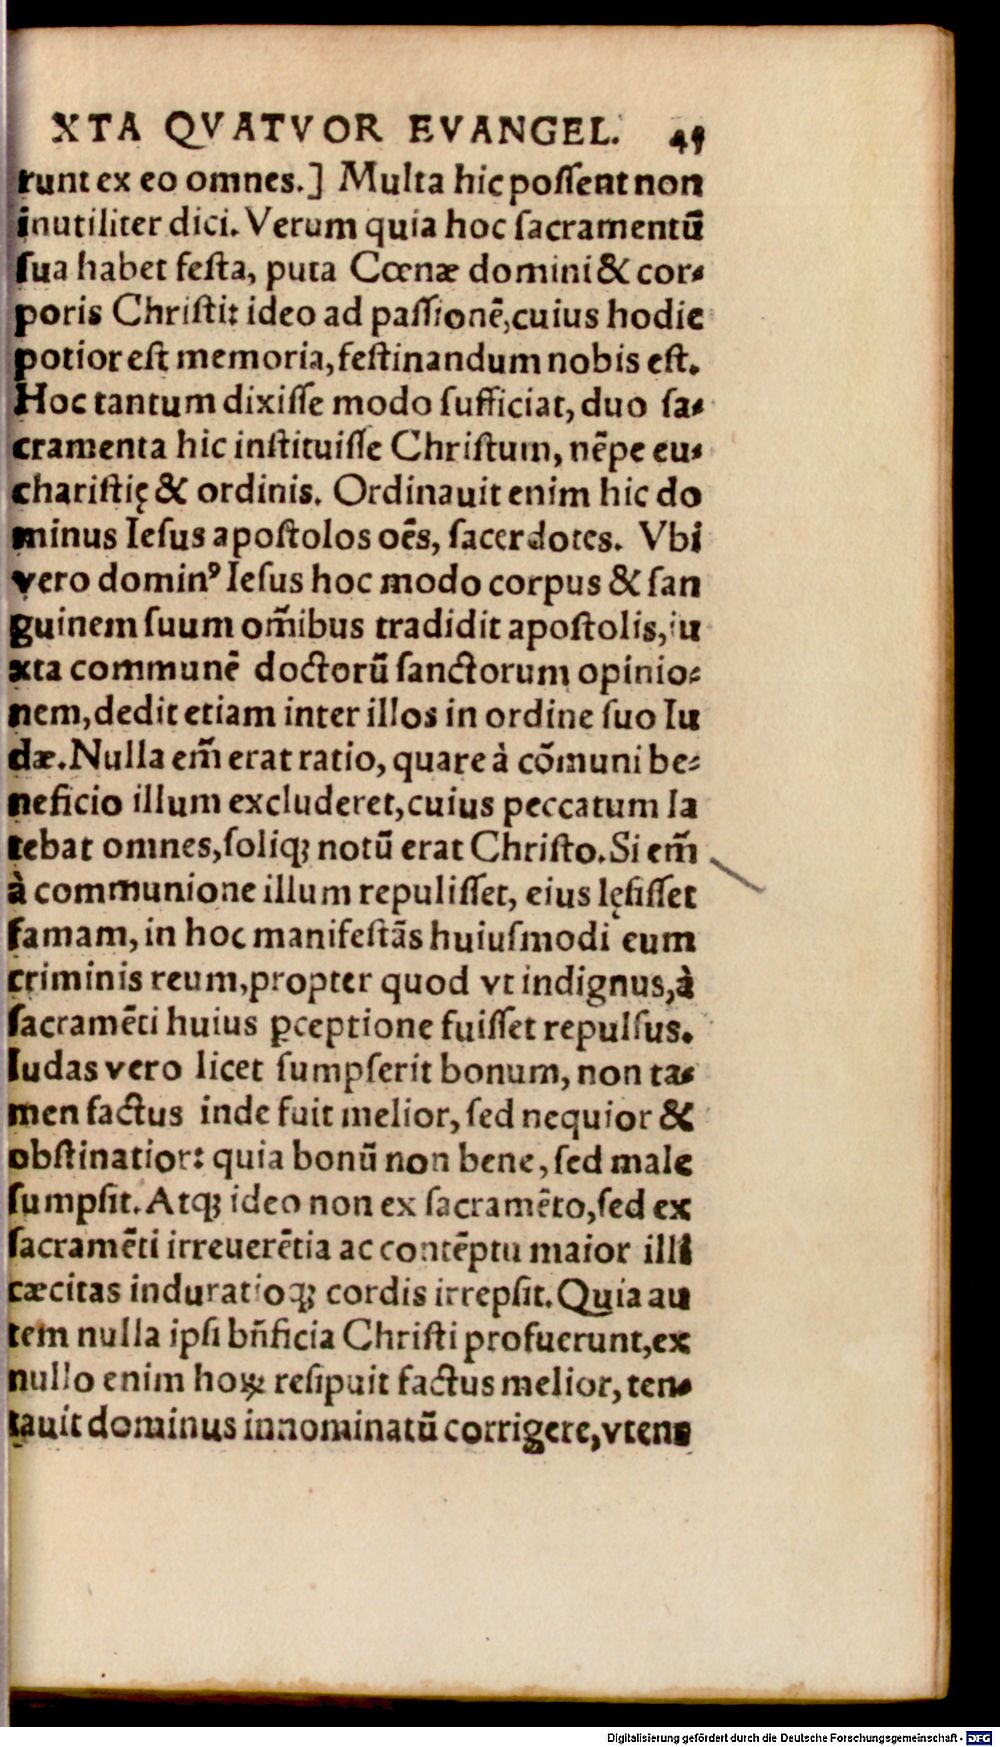 XTA QVATVOR EVANGEL. 45
runt ex eo omnes.] Multa hic poſſent non
inutiliter dici. Verum quia hoc ſacramentū
ſua habet feſta, puta Cœnæ domini & cor⸗
poris Chriſti: ideo ad paſſionē, cuius hodie
potior eſt memoria, feſtinandum nobis eſt.
Hoc tantum dixiſſe modo ſufficiat, duo ſa⸗
cramenta hic inſtituiſſe Chriſtum, nēpe eu⸗
chariſtię & ordinis. Ordinauit enim hic do
minus Ieſus apoſtolos oēs, ſacerdotes. Vbi
vero dominꝰ Ieſus hoc modo corpus & ſan
guinem ſuum om̃ibus tradidit apoſtolis, iu
xta communē doctorū ſanctorum opinio⸗
nem, dedit etiam inter illos in ordine ſuo Iu
dæ. Nulla em̃ erat ratio, quare à cōmuni be⸗
neficio illum excluderet, cuius peccatum la
tebat omnes, ſoliq; notū erat Chriſto. Si em̃
à communione illum repuliſſet, eius lęſiſſet
famam, in hoc manifeſtãs huiuſmodi eum
criminis reum, propter quod vt indignus, à
ſacramēti huius ꝑceptione fuiſſet repulſus.
Iudas vero licet ſumpſerit bonum, non ta⸗
men factus inde fuit melior, ſed nequior &
obſtinatior: quia bonū non bene, ſed male
ſumpſit. Atq; ideo non ex ſacramēto, ſed ex
ſacramēti irreuerētia ac contēptu maior illi
cæcitas induratioq; cordis irrepſit. Quia au
tem nulla ipſi bñficia Chriſti profuerunt, ex
nullo enim hoꝝ reſipuit factus melior, ten⸗
tauit dominus innominatū corrigere, vtens
Digitalisierung gefördert durch die Deutsche Forschungsgemeinschaft - DFG